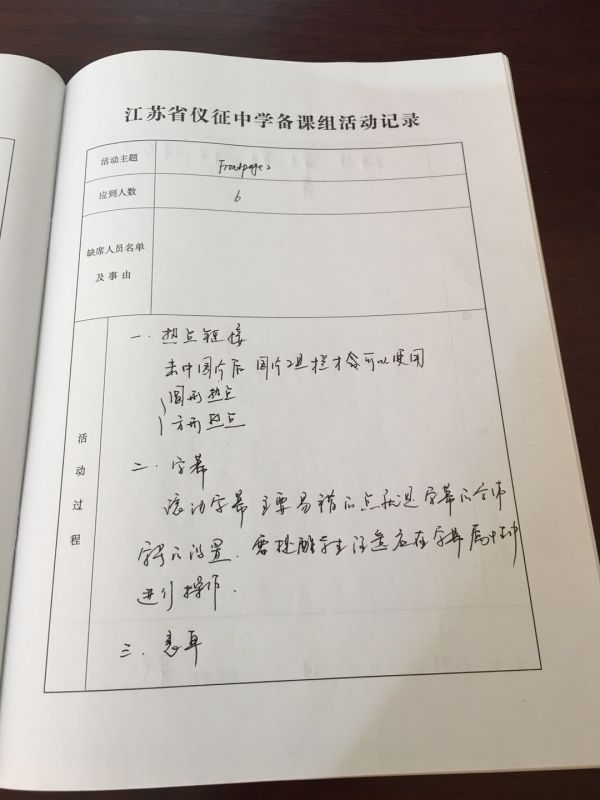 江苏省仪征中学备课组活动记录
活动主题
Frontpage 2
应到人数
6
缺席人员名单
及事由
活动过程
一. 热点链接
击中图片后 图片工具栏才会可以使用
圆形热点
方形热点
二. 字幕
滚动字幕 主要易错的点就是字幕的字体
字号的设置. 需提醒学生注意应在字幕属性中
进行操作.
三. 表单